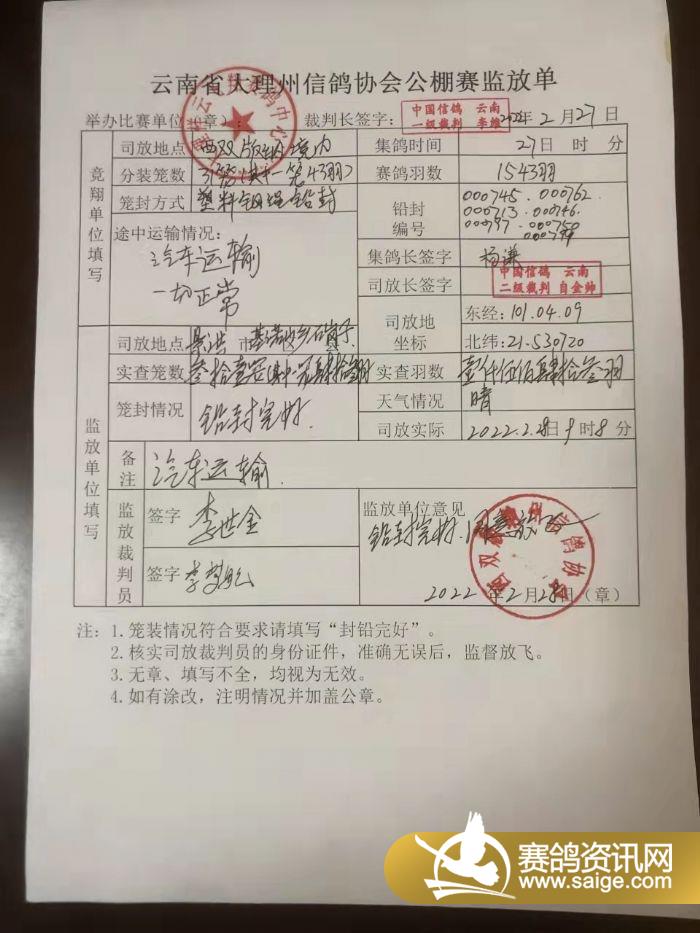 云南省大理州信鸽协会公棚赛监放单
举办比赛单位（章）： 裁判长签字： 中国信鸽 云南 一级裁判 李维 2022年2月27日
竞翔单位填写
司放地点 西双版纳境内 集鸽时间 27日 时 分
分装笼数 31笼(其中一笼43羽) 赛鸽羽数 1543羽
笼封方式 塑料铅封 铅封编号 000745.000762
000713.000746
000750
000799
途中运输情况： 汽车运输
一切正常
集鸽长签字 杨谦
司放长签字 中国信鸽 云南 二级裁判 自金帅
司放地坐标 东经:101.04.09
北纬:21.530720
监放单位填写
司放地点 景洪 市 基诺 区 乡 县
实查笼数 叁拾壹 实查羽数 壹仟伍佰肆拾叁羽
笼封情况 铅封完好. 天气情况 晴
司放实际 2022.2.28日9时8分
备注 汽车运输.
监放裁判员 签字 李世金
签字 李
监放单位意见
铅封完好.同意放飞
西双版纳州信鸽协会
2022年2月28日（章）
注：1.笼装情况符合要求请填写“封铅完好”。
2.核实司放裁判员的身份证件，准确无误后，监督放飞。
3.无章、填写不全，均视为无效。
4.如有涂改，注明情况并加盖公章。
赛鸽资讯网
www.saige.com